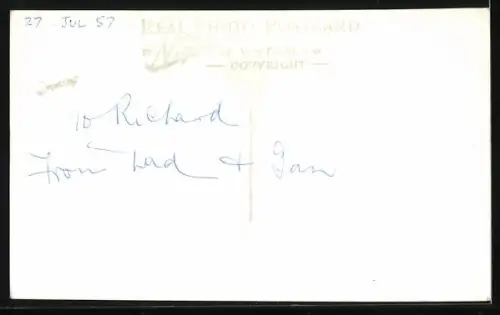 27 JUL 57
REAL PHOTO POSTCARD
COPYRIGHT
to Richard
From Lad & Jan